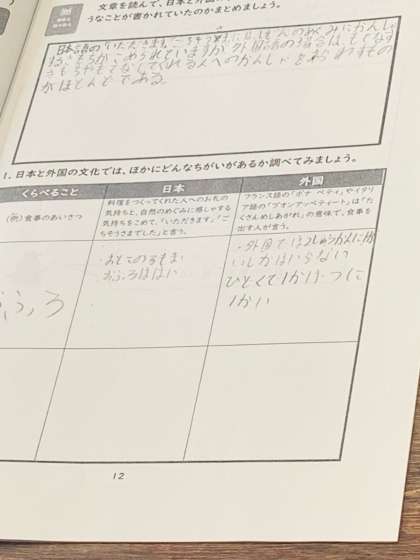 文章を読んで、日本と外
うなことが書かれていたのかまとめましょう。
日本語の「いただきます」「ごちそうさま」には、しぜんのめぐみにかんしゃ
するきもちがこめられていますが、外国語の場合は、もてなす
きもちやもてなしてくれる人へのかんしゃをあらわすもの
がほとんどである
1. 日本と外国の文化では、ほかにどんなちがいがあるか調べてみましょう。
くらべること
日本
外国
(例) 食事のあいさつ
料理をつくってくれた人へのお礼の
気持ちと、自然のめぐみに感しゃする
気持ちをこめて、「いただきます」「ご
ちそうさまでした」と言う。
フランス語の「ボナ ペティ」やイタリ
ア語の「ブオンアッペティート」は「た
くさんめしあがれ」の意味で、食事を
出す人が言う。
おふろ
いしかはいらない
ひどくて1か
1かい
12